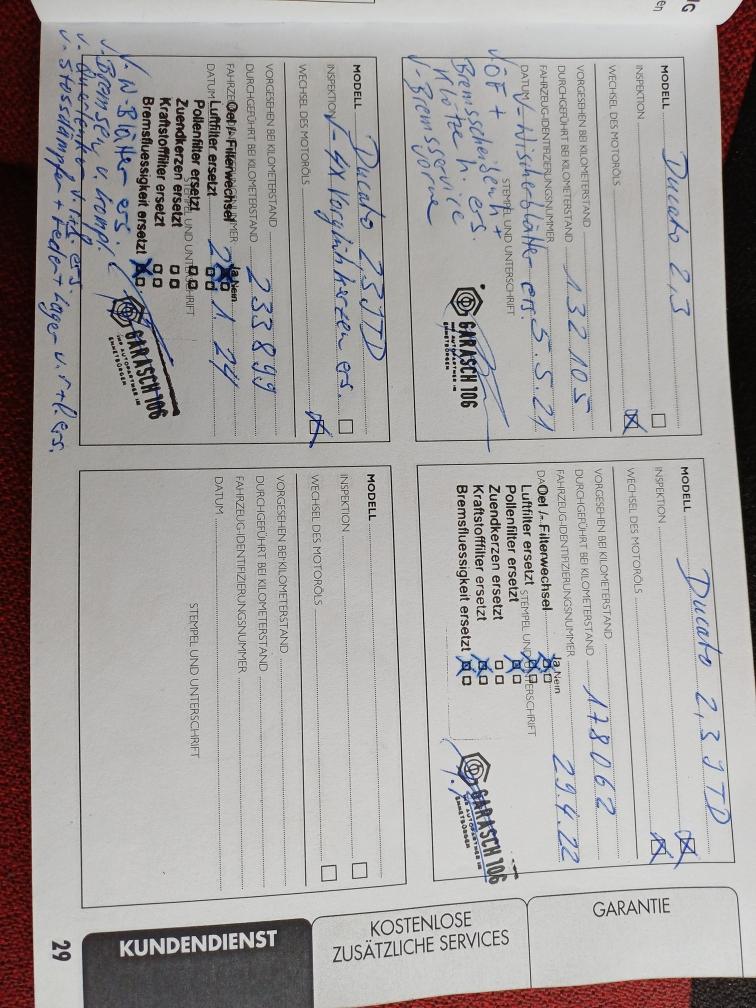 MODELL Ducato 2,3
INSPEKTION
WECHSEL DES MOTORÖLS
VORGESEHEN BEI KILOMETERSTAND
DURCHGEFÜHRT BEI KILOMETERSTAND 132 105
FAHRZEUG-IDENTIFIZIERUNGSNUMMER
DATUM 5.5.21
STEMPEL UND UNTERSCHRIFT
√-Wischerblätter ers.
√ÖF +
Bremsscheiben h +
Klötze h. ers.
√-Bremsservice
vorne
GARASCH 106
IHR AUTOPARTNER IN
EHMETBÜRGEN
MODELL Ducato 2,3 JTD
INSPEKTION
WECHSEL DES MOTORÖLS
VORGESEHEN BEI KILOMETERSTAND
DURCHGEFÜHRT BEI KILOMETERSTAND 178062
FAHRZEUG-IDENTIFIZIERUNGSNUMMER
29.4.22
Ja Nein
Oel /- Filterwechsel
Luftfilter ersetzt
Pollenfilter ersetzt
Zuendkerzen ersetzt
Kraftstofffilter ersetzt
Bremsfluessigkeit ersetzt
STEMPEL UND UNTERSCHRIFT
GARASCH 106
IHR AUTOPARTNER IN
MODELL Ducato 2,3 JTD
INSPEKTION √-4x Vorglühkerzen ers.
WECHSEL DES MOTORÖLS
VORGESEHEN BEI KILOMETERSTAND
DURCHGEFÜHRT BEI KILOMETERSTAND 233899
DATUM
Ja Nein
Oel /- Filterwechsel
Luftfilter ersetzt
Pollenfilter ersetzt
Zuendkerzen ersetzt
Kraftstofffilter ersetzt
Bremsfluessigkeit ersetzt
STEMPEL UND UNTERSCHRIFT
1 24
√. W-Blätter ers.
√Bremsen v. kompl.
√. Querlenker v. ers.
√. Stossdämpfer + Federn + Lager v. r+l ers.
GARASCH 106
IHR AUTOPARTNER IN
MODELL
INSPEKTION
WECHSEL DES MOTORÖLS
VORGESEHEN BEI KILOMETERSTAND
DURCHGEFÜHRT BEI KILOMETERSTAND
FAHRZEUG-IDENTIFIZIERUNGSNUMMER
DATUM
STEMPEL UND UNTERSCHRIFT
GARANTIE
KOSTENLOSE
ZUSÄTZLICHE SERVICES
KUNDENDIENST
29